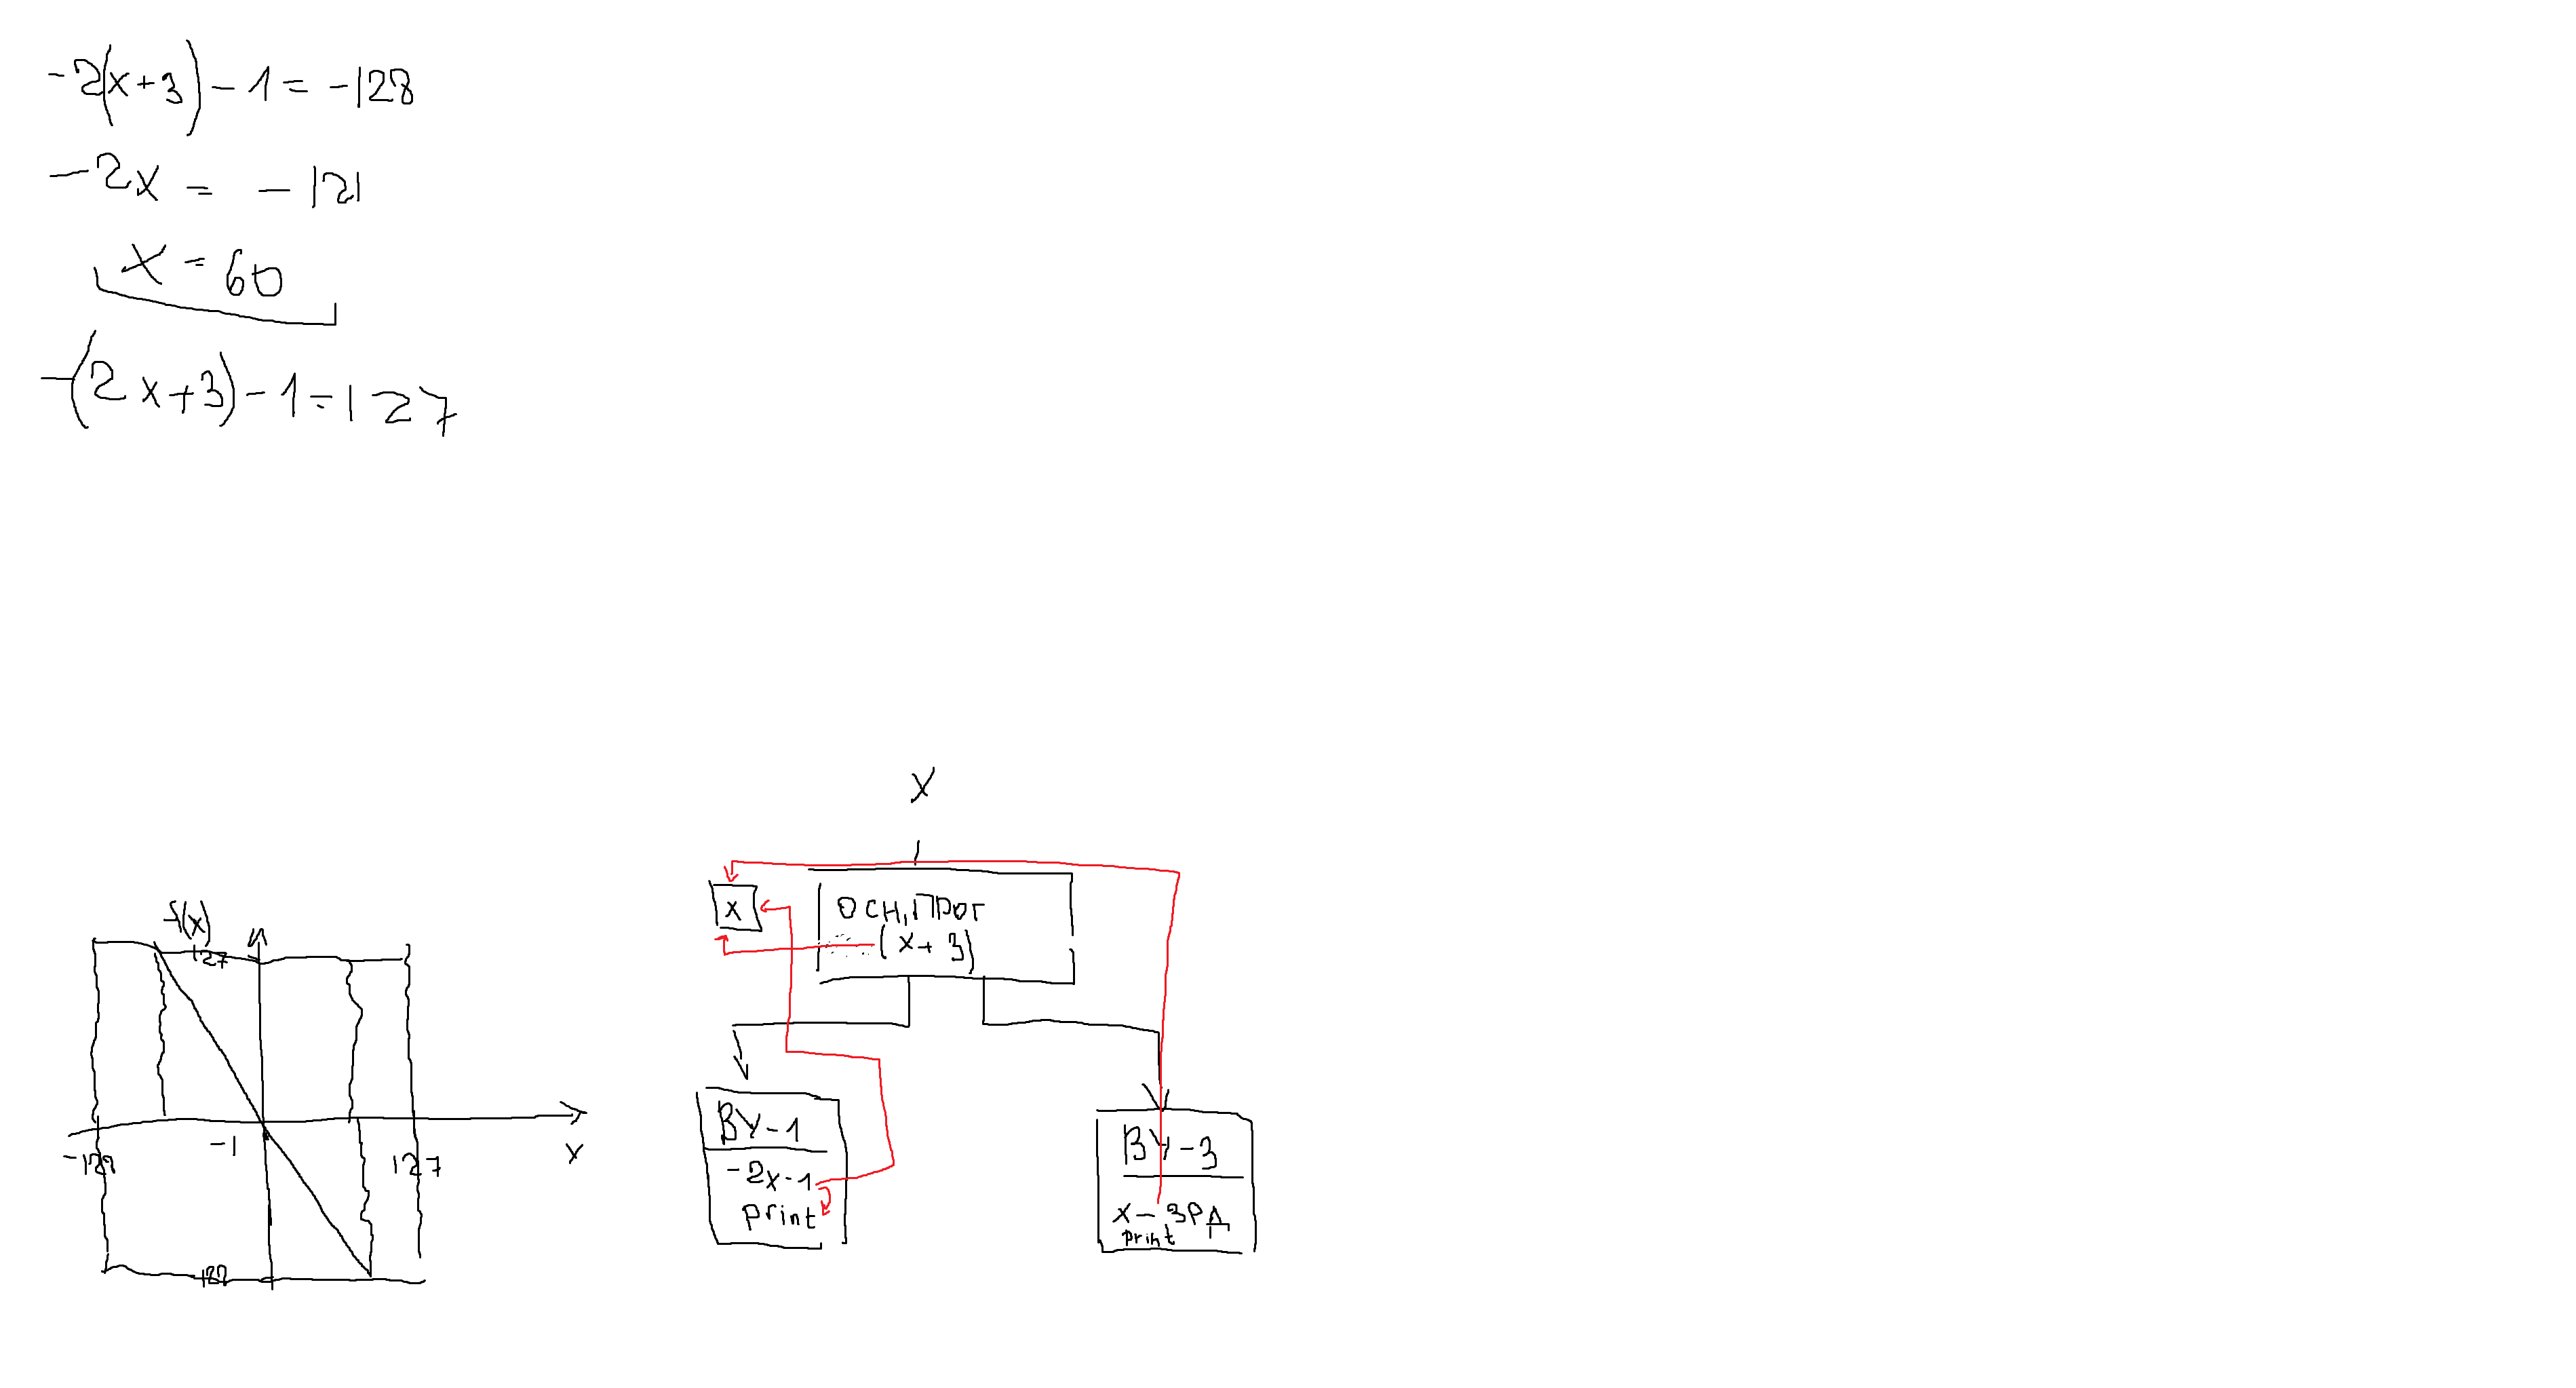 -2(x+3)-1=-128
-2x = -121
x = 60
-(2x+3)-1=127
f(x)
127
-1
-128
127
x
-128
X
X
ОСН,ПРОГ
(x+3)
ВУ-1
-2x-1
print
ВУ-3
x-3РД
print